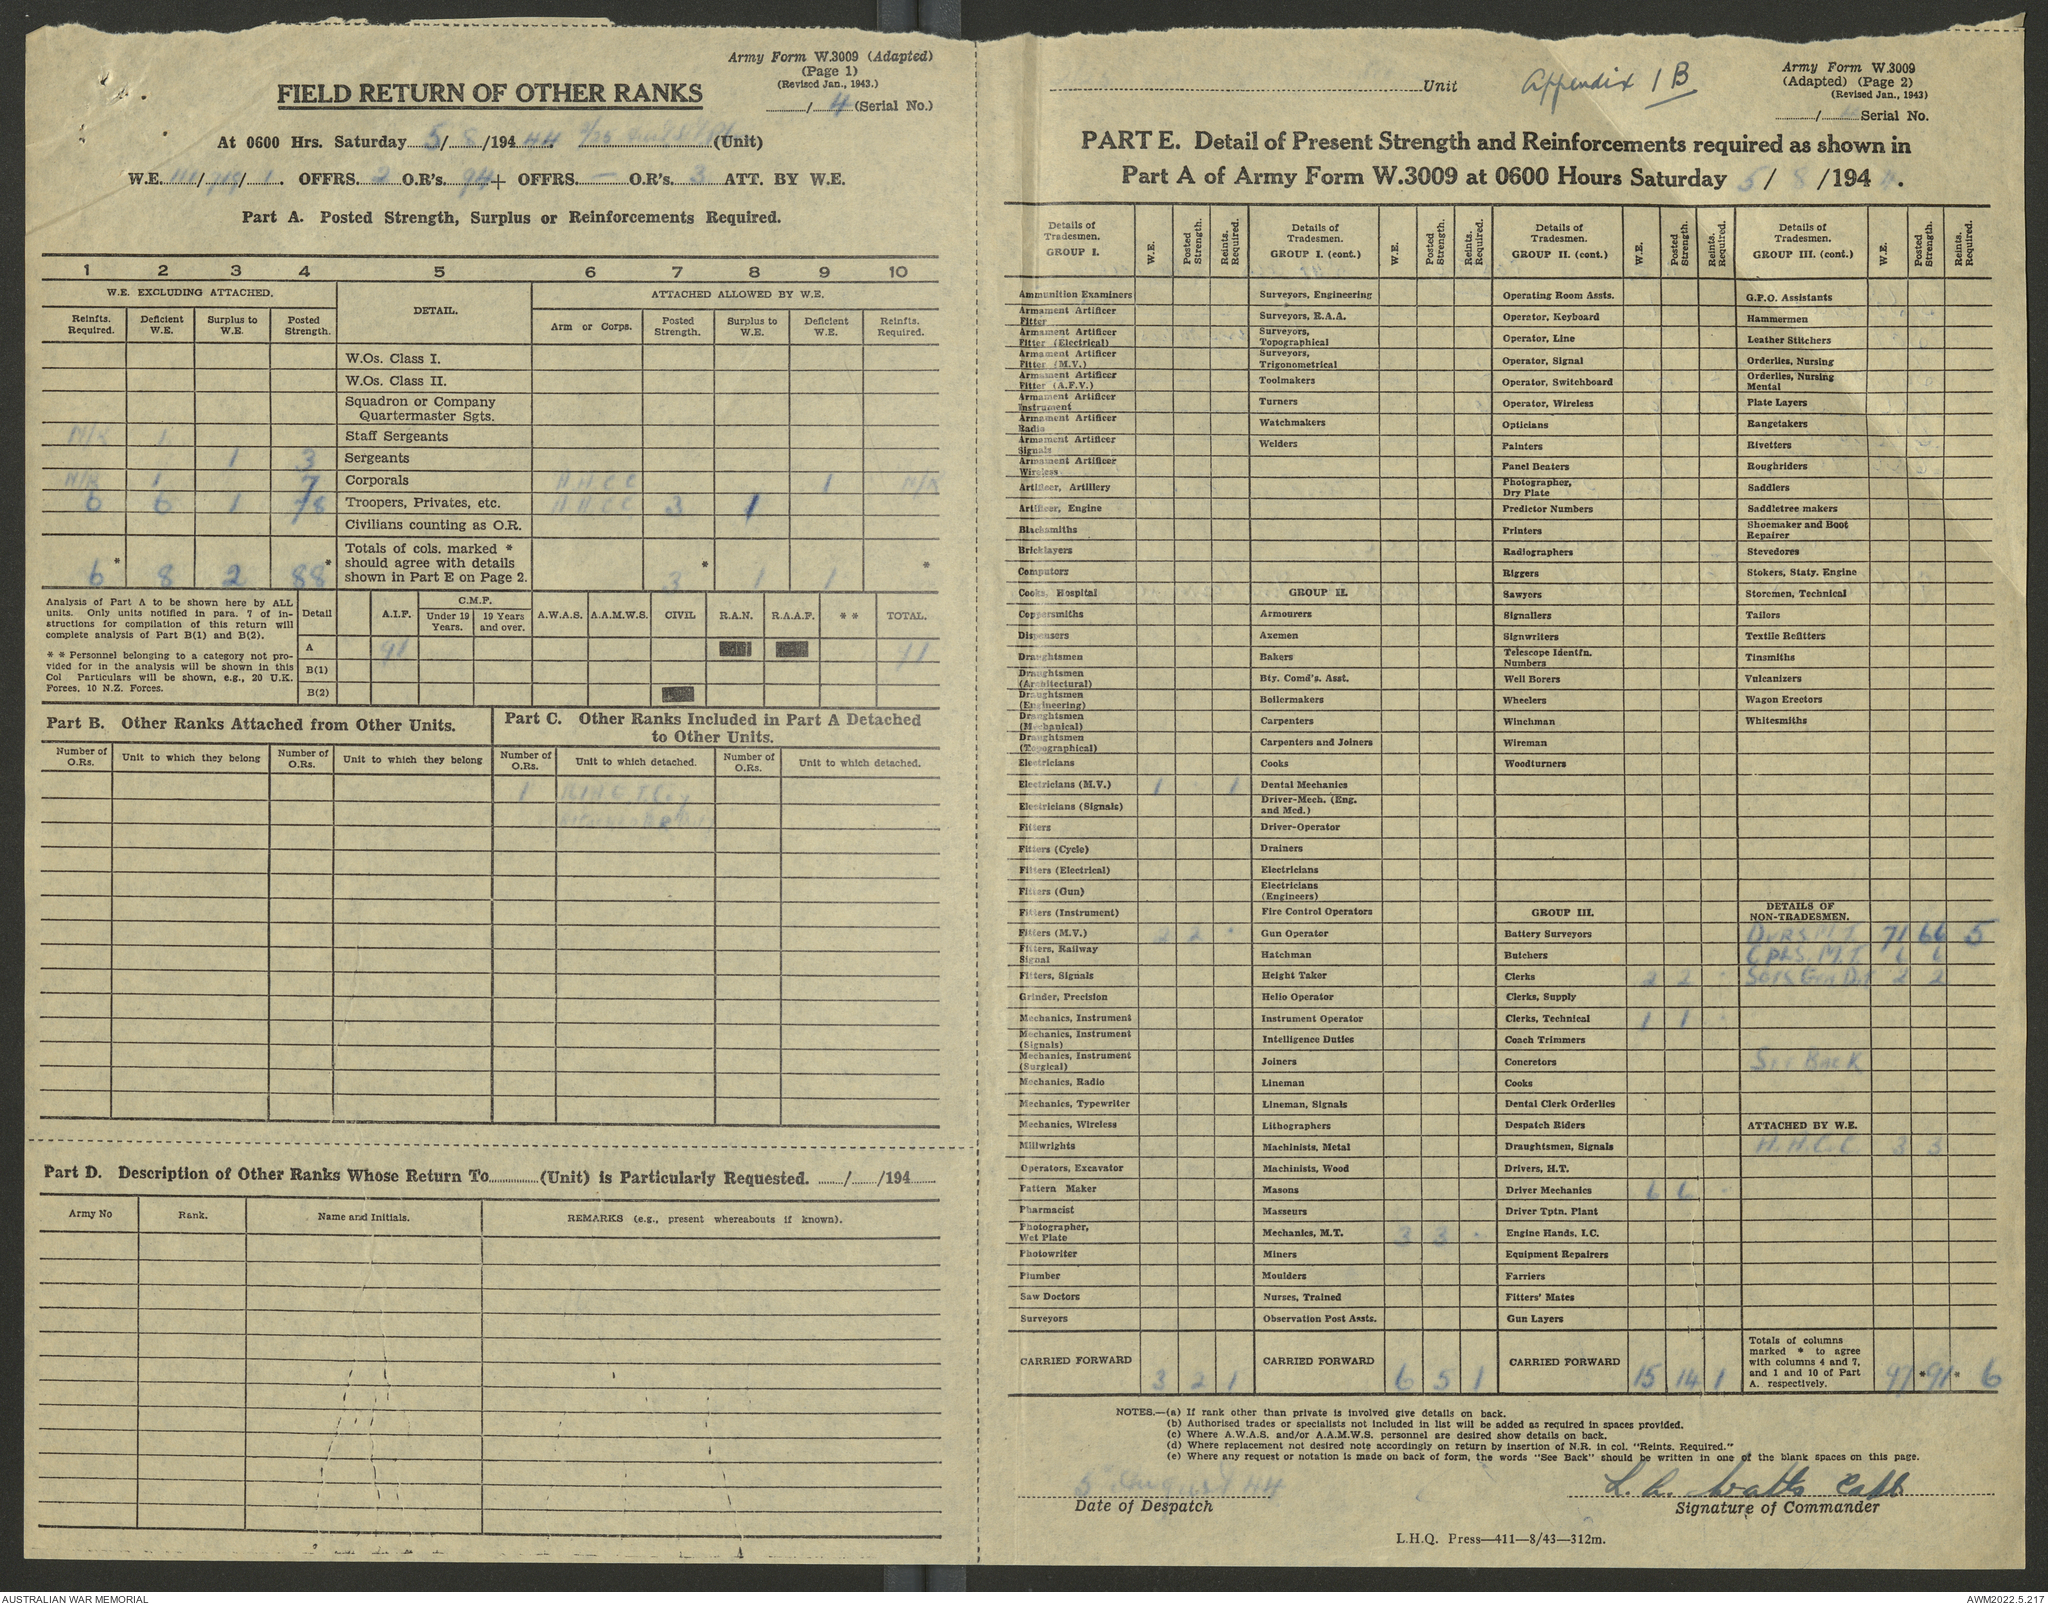 Army Form W.3009 (Adapted)
(Page 1)
(Revised Jan., 1943.)
/ 4 (Serial No.)
FIELD RETURN OF OTHER RANKS
At 0600 Hrs. Saturday 5/ 8 /194 44 (Unit)
W.E. 111/ / 1 . OFFRS. 2 O.R's. 94 + OFFRS. — O.R's. 3 ATT. BY W.E.
Part A. Posted Strength, Surplus or Reinforcements Required.
1 2 3 4 5 6 7 8 9 10
W.E. EXCLUDING ATTACHED. DETAIL. ATTACHED ALLOWED BY W.E.
Reinfts. Required. Deficient W.E. Surplus to W.E. Posted Strength. Arm or Corps. Posted Strength. Surplus to W.E. Deficient W.E. Reinfts. Required.
W.Os. Class I.
W.Os. Class II.
Squadron or Company
Quartermaster Sgts.
N/R 1 Staff Sergeants
1 3 Sergeants
N/R 1 7 Corporals A.A.C.C 1 N/R
6 6 1 78 Troopers, Privates, etc. A.A.C.C 3 1
Civilians counting as O.R.
Totals of cols. marked *
should agree with details
shown in Part E on Page 2.
6 * 8 2 88 * 3 * 1 1 *
Analysis of Part A to be shown here by ALL
units. Only units notified in para. 7 of in-
structions for compilation of this return will
complete analysis of Part B(1) and B(2).
* * Personnel belonging to a category not pro-
vided for in the analysis will be shown in this
Col Particulars will be shown, e.g., 20 U.K.
Forces. 10 N.Z. Forces.
Detail A.I.F. C.M.F. Under 19 Years. 19 Years and over. A.W.A.S. A.A.M.W.S. CIVIL R.A.N. R.A.A.F. * * TOTAL.
A 91 91
B(1)
B(2)
Part B. Other Ranks Attached from Other Units.
Number of O.Rs. Unit to which they belong Number of O.Rs. Unit to which they belong
Part C. Other Ranks Included in Part A Detached
to Other Units.
Number of O.Rs. Unit to which detached. Number of O.Rs. Unit to which detached.
1
Part D. Description of Other Ranks Whose Return To (Unit) is Particularly Requested. / /194
Army No Rank. Name and Initials. REMARKS (e.g., present whereabouts if known).
Unit
Appendix 1B
Army Form W.3009
(Adapted) (Page 2)
(Revised Jan., 1943)
/ Serial No.
PART E. Detail of Present Strength and Reinforcements required as shown in
Part A of Army Form W.3009 at 0600 Hours Saturday 5/ 8 /194 4 .
Details of Tradesmen. GROUP I. W.E. Posted Strength. Reints. Required.
Ammunition Examiners
Armament Artificer Fitter
Armament Artificer Fitter (Electrical)
Armament Artificer Fitter (M.V.)
Armament Artificer Fitter (A.F.V.)
Armament Artificer Instrument
Armament Artificer Radio
Armament Artificer Signals
Armament Artificer Wireless
Artificer, Artillery
Artificer, Engine
Blacksmiths
Bricklayers
Computors
Cooks, Hospital
Coppersmiths
Dispensers
Draughtsmen
Draughtsmen (Architectural)
Draughtsmen (Engineering)
Draughtsmen (Mechanical)
Draughtsmen (Topographical)
Electricians
Electricians (M.V.) 1 1
Electricians (Signals)
Fitters
Fitters (Cycle)
Fitters (Electrical)
Fitters (Gun)
Fitters (Instrument)
Fitters (M.V.) 2 2 -
Fitters, Railway Signal
Fitters, Signals
Grinder, Precision
Mechanics, Instrument
Mechanics, Instrument (Signals)
Mechanics, Instrument (Surgical)
Mechanics, Radio
Mechanics, Typewriter
Mechanics, Wireless
Millwrights
Operators, Excavator
Pattern Maker
Pharmacist
Photographer, Wet Plate
Photowriter
Plumber
Saw Doctors
Surveyors
CARRIED FORWARD 3 2 1
Details of Tradesmen. GROUP I. (cont.) W.E. Posted Strength. Reints. Required.
Surveyors, Engineering
Surveyors, R.A.A.
Surveyors, Topographical
Surveyors, Trigonometrical
Toolmakers
Turners
Watchmakers
Welders
GROUP II.
Armourers
Axemen
Bakers
Bty. Comd's. Asst.
Boilermakers
Carpenters
Carpenters and Joiners
Cooks
Dental Mechanics
Driver-Mech. (Eng. and Med.)
Driver-Operator
Drainers
Electricians
Electricians (Engineers)
Fire Control Operators
Gun Operator
Hatchman
Height Taker
Helio Operator
Instrument Operator
Intelligence Duties
Joiners
Lineman
Lineman, Signals
Lithographers
Machinists, Metal
Machinists, Wood
Masons
Masseurs
Mechanics, M.T. 3 3 -
Miners
Moulders
Nurses, Trained
Observation Post Assts.
CARRIED FORWARD 6 5 1
Details of Tradesmen. GROUP II. (cont.) W.E. Posted Strength. Reints. Required.
Operating Room Assts.
Operator, Keyboard
Operator, Line
Operator, Signal
Operator, Switchboard
Operator, Wireless
Opticians
Painters
Panel Beaters
Photographer, Dry Plate
Predictor Numbers
Printers
Radiographers
Riggers
Sawyers
Signallers
Signwriters
Telescope Identfn. Numbers
Well Borers
Wheelers
Winchman
Wireman
Woodturners
GROUP III.
Battery Surveyors
Butchers
Clerks 2 2 -
Clerks, Supply
Clerks, Technical 1 1 -
Coach Trimmers
Concretors
Cooks
Dental Clerk Orderlies
Despatch Riders
Draughtsmen, Signals
Drivers, H.T.
Driver Mechanics 6 6 -
Driver Tptn. Plant
Engine Hands, I.C.
Equipment Repairers
Farriers
Fitters' Mates
Gun Layers
CARRIED FORWARD 15 14 1
Details of Tradesmen. GROUP III. (cont.) W.E. Posted Strength. Reints. Required.
G.P.O. Assistants
Hammermen
Leather Stitchers
Orderlies, Nursing
Orderlies, Nursing Mental
Plate Layers
Rangetakers
Rivetters
Roughriders
Saddlers
Saddletree makers
Shoemaker and Boot Repairer
Stevedores
Stokers, Staty. Engine
Storemen, Technical
Tailors
Textile Refitters
Tinsmiths
Vulcanizers
Wagon Erectors
Whitesmiths
DETAILS OF NON-TRADESMEN.
Dvrs M.T. 71 66 5
Cpls. M.T. 6 6
Gen Dut 2 2
See Back
ATTACHED BY W.E.
A.A.C.C 3 3
Totals of columns
marked * to agree
with columns 4 and 7,
and 1 and 10 of Part
A. respectively.
97 * 91 * 6
NOTES.—(a) If rank other than private is involved give details on back.
(b) Authorised trades or specialists not included in list will be added as required in spaces provided.
(c) Where A.W.A.S. and/or A.A.M.W.S. personnel are desired show details on back.
(d) Where replacement not desired note accordingly on return by insertion of N.R. in col. "Reints. Required."
(e) Where any request or notation is made on back of form, the words "See Back" should be written in one of the blank spaces on this page.
5 August 44
Date of Despatch
L. A. Watts Capt
Signature of Commander
L.H.Q. Press—411—8/43—312m.
AUSTRALIAN WAR MEMORIAL
AWM2022.5.217